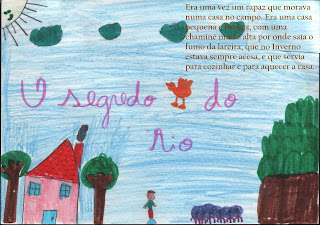 Era uma vez um rapaz que morava
numa casa no campo. Era uma casa
pequena e branca, com uma
chaminé muito alta por onde saía o
fumo da lareira, que no Inverno
estava sempre acesa, e que servia
para cozinhar e para aquecer a casa.
O segredo do
rio